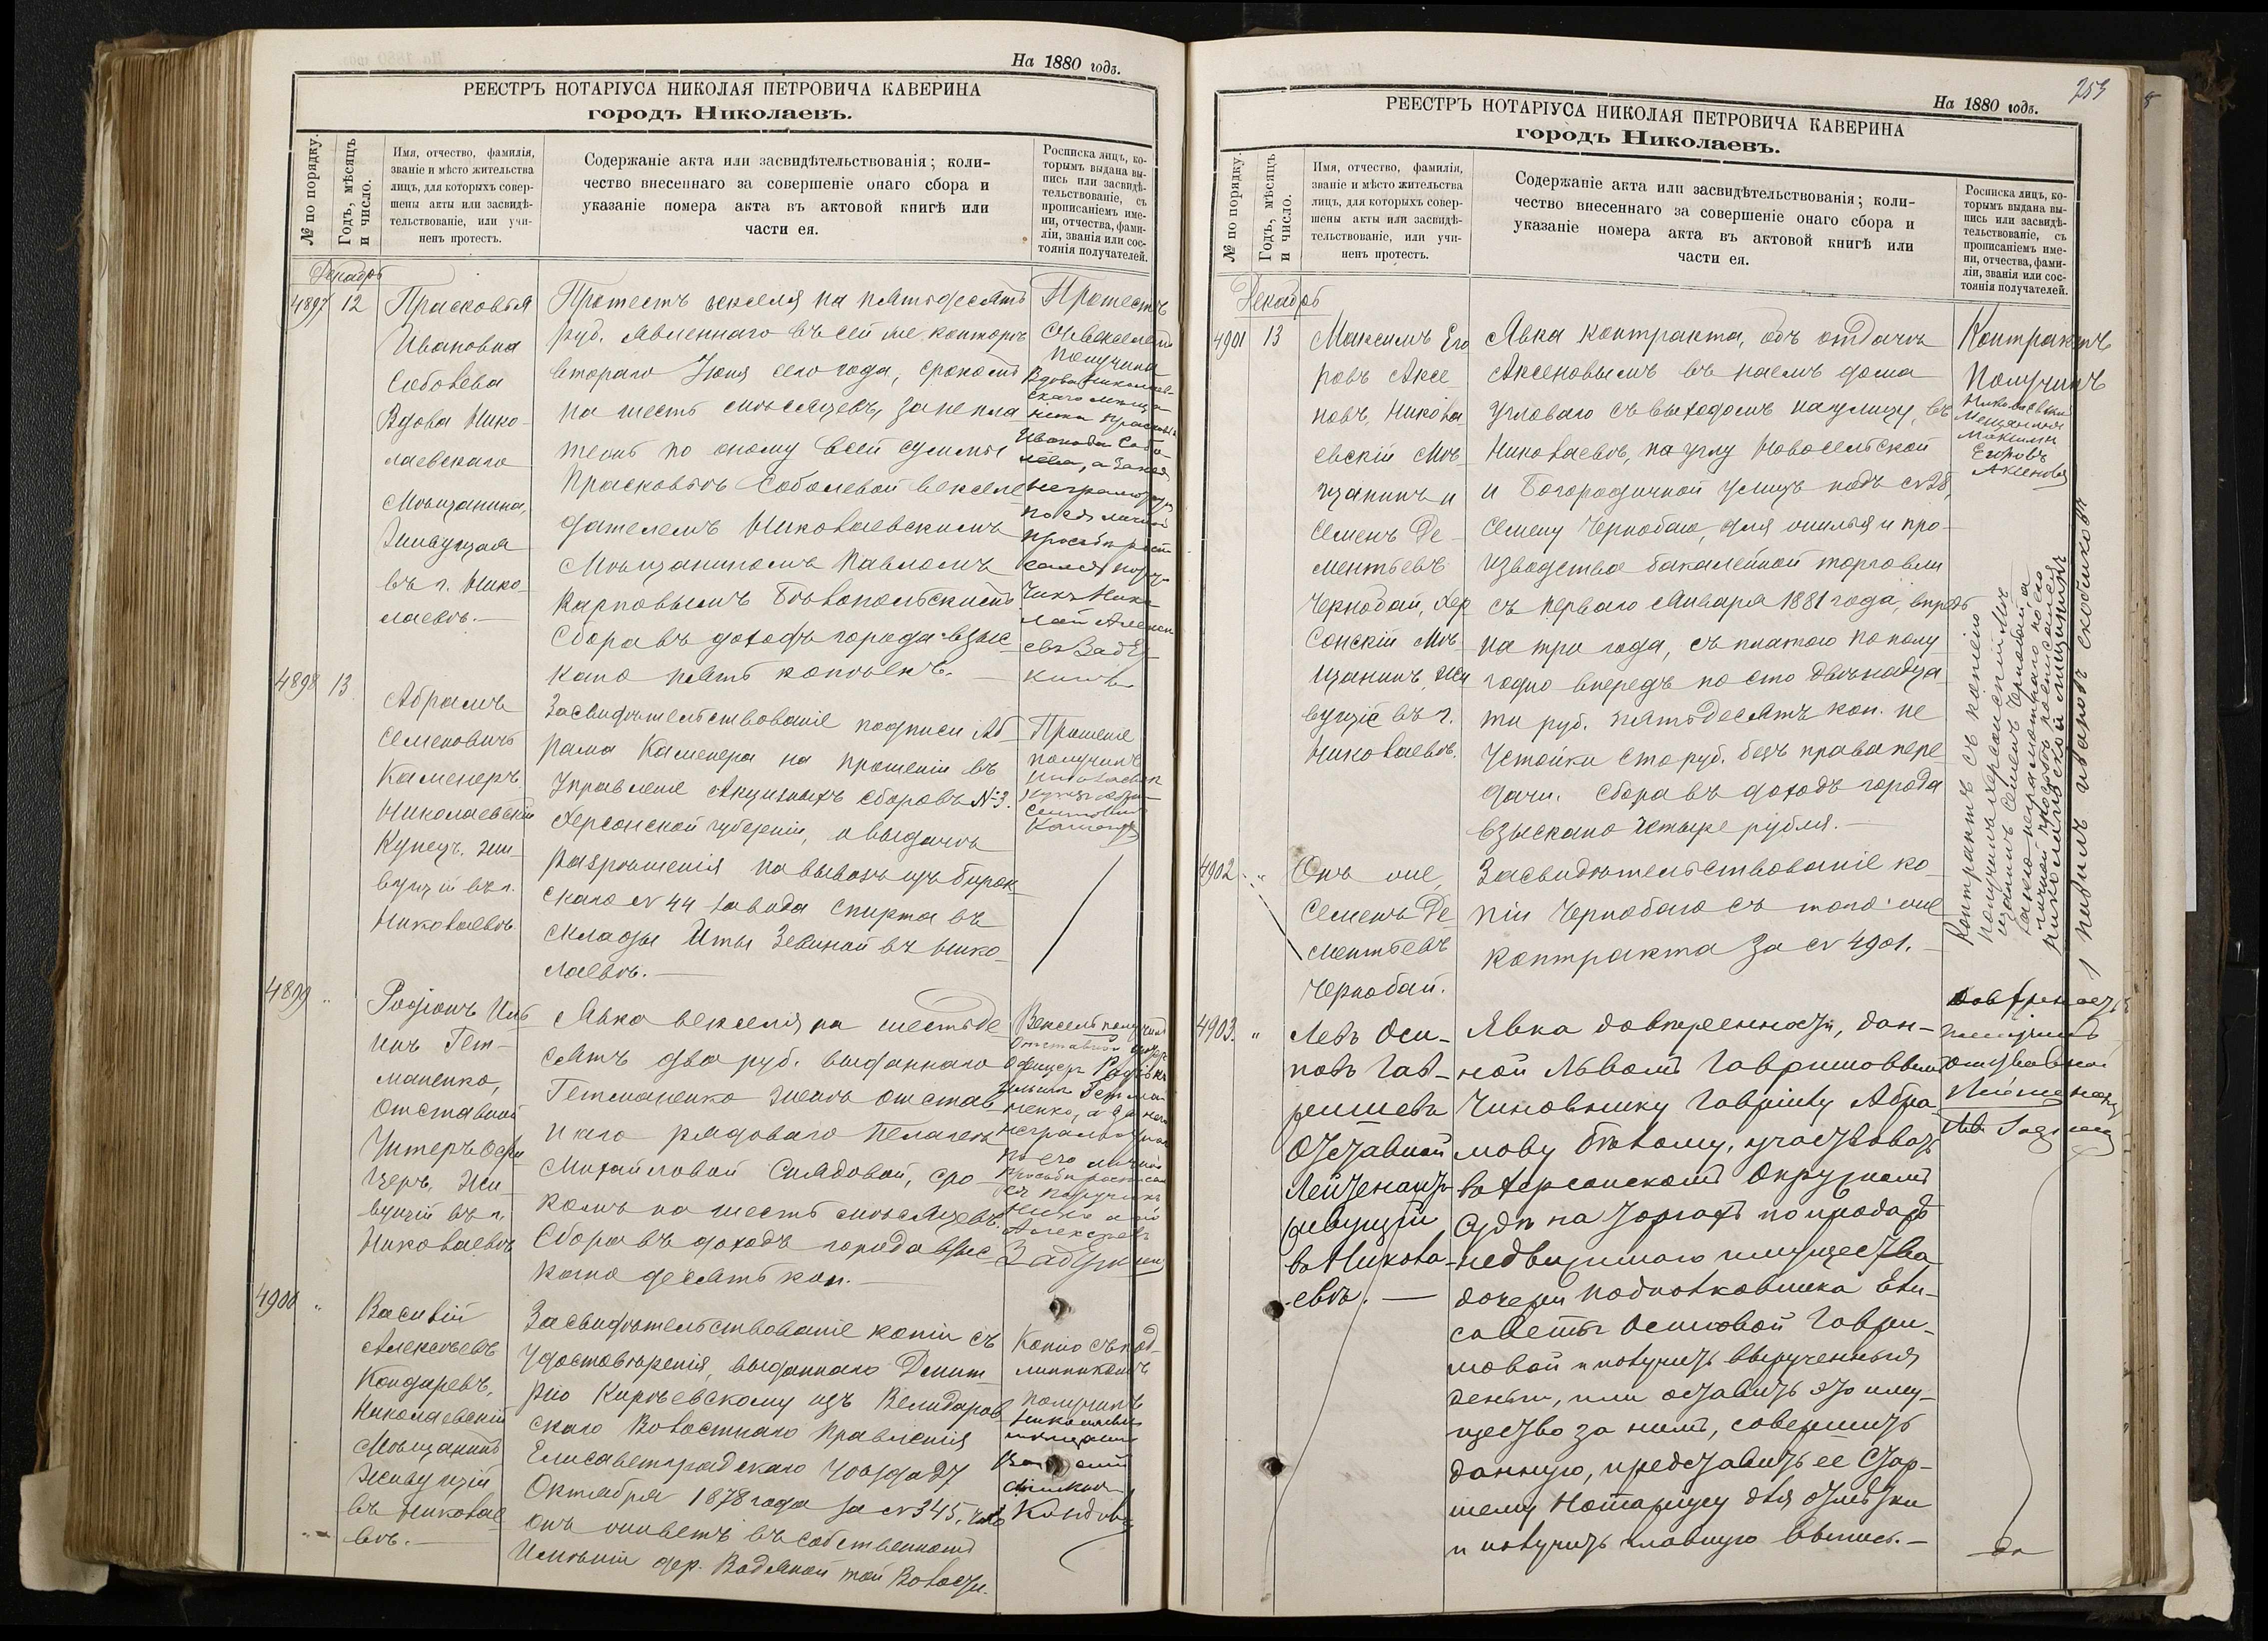 На 1880 годъ.
РЕЕСТРЪ НОТАРІУСА НИКОЛАЯ ПЕТРОВИЧА КАВЕРИНА
городъ Николаевъ.
№ по порядку.
Годъ, мѣсяцъ
и число.
Имя, отчество, фамилія,
званіе и мѣсто жительства
лицъ, для которыхъ совер-
шены акты или засвидѣ-
тельствованіе, или учи-
ненъ протестъ.
Содержаніе акта или засвидѣтельствованія; коли-
чество внесеннаго за совершеніе онаго сбора и
указаніе номера акта въ актовой книгѣ или
части ея.
Росписка лицъ, ко-
торымъ выдана вы-
пись или засвидѣ-
тельствованіе, съ
прописаніемъ име-
ни, отчества, фами-
ліи, званія или сос-
тоянія получателей.
Декабрь
4897 12
Прасковья
Ивановна
Соболева
Вдова Нико-
лаевскаго
Мѣщанина,
Живущая
въ г. Нико-
лаевѣ.
Протестъ векселя на пятьдесятъ
руб. явленнаго въ сей же конторѣ
втораго Іюня сего года, срокомъ
на шесть мѣсяцевъ, за непла
тежъ по оному всей суммы
Прасковьѣ Соболевой векселе
дателемъ Николаевскимъ
Мѣщаниномъ Павломъ
Карповымъ Бѣлопольскимъ
Сбора въ доходъ города взыс-
кано пять копѣекъ.
Протестъ
съ векселемъ
получила
Вдова Николаев-
скаго мѣща-
нина Прасковья
Иванова Собо-
лева, а за нея
неграмотную
по ея личной
просьбѣ росп
сался Пору-
чикъ Нико
лай Алексе
евъ Заду
кинъ
4898 13.
Абрамъ
Семеновичъ
Каменеръ
Николаевскій
Купецъ, жи-
вущій въ г.
Николаевѣ
Засвидѣтельствованіе подписи Аб
рама Каменера на прошеніи въ
Управленіе Акцизныхъ сборовъ № 3.
Херсонской губерніи, о выдачѣ
разрѣшенія на вывозъ изъ бирок-
скаго № 44 завода спирта въ
склады Иты Зевиной въ Нико-
лаевѣ.
Прошеніе
получилъ
4899 "
Родіонъ Иль
инъ Гет-
маненко,
Отставной
Унтеръ Офи
церъ, Жи-
вущій въ г.
Николаевѣ
Явка векселя на шестьде
сятъ два руб. выданнаго
Гетманенко женѣ отстав
наго рядоваго Пелагеѣ
Михайловой Силядовой, сро-
комъ на шесть мѣсяцевъ.
Сбора въ доходъ города взыс
кано десять коп.
Вексель получилъ
Отставной унтеръ
офицеръ Родіонъ
Ильинъ Гетма
ненко, а за него
неграмотнаго
по его личной
просьбѣ росписал
ся поручикъ
Николай
Алексеевъ
Задукинъ
4900 "
Василій
Алексѣевъ
Кондаревъ,
Николаевскій
Мѣщанинъ
Живущій
въ Николае
вѣ.
Засвидѣтельствованіе копіи съ
Удостовѣренія, выданнаго Дмит
рію Кирѣевскому изъ Велидаров
скаго Волостнаго Правленія
Елисаветградскаго уѣзда 27
Октября 1878 года за № 345, что
онъ живетъ въ собственномъ
Имѣніи дер. Водяной той Волости.
Копію съ под
линникомъ
получилъ
Николаевск
мѣщанинъ
На 1880 годъ.
253
РЕЕСТРЪ НОТАРІУСА НИКОЛАЯ ПЕТРОВИЧА КАВЕРИНА
городъ Николаевъ.
№ по порядку.
Годъ, мѣсяцъ
и число.
Имя, отчество, фамилія,
званіе и мѣсто жительства
лицъ, для которыхъ совер-
шены акты или засвидѣ-
тельствованіе, или учи-
ненъ протестъ.
Содержаніе акта или засвидѣтельствованія; коли-
чество внесеннаго за совершеніе онаго сбора и
указаніе номера акта въ актовой книгѣ или
части ея.
Росписка лицъ, ко-
торымъ выдана вы-
пись или засвидѣ-
тельствованіе, съ
прописаніемъ име-
ни, отчества, фами-
ліи, званія или сос-
тоянія получателей.
Декабрь
4901 13
Максимъ Его
ровъ Аксе
новъ, Никола
евскій Мѣ-
щанинъ и
Семенъ Де-
ментьевъ
Чернобай, Хер
сонскій Мѣ
щанинъ, жи
вущіе въ г.
Николаевѣ.
Явка контракта, объ отдачѣ
Аксеновымъ въ наемъ дома
угловаго съ выходомъ на улицу, въ
Николаевѣ, на углу Новосельской
и Богородичной улицъ подъ № 28,
Семену Чернобаю, для жилья и про-
изводства бакалейной торговли
съ перваго Января 1881 года, впредь
на три года, съ платою по полу
годно впередъ по сто двѣнадца
ти руб. пятьдесятъ коп. не
устойки сто руб. безъ права пере
дачи. Сбора въ доходъ города
взыскано четыре рубля.
Контрактъ
Получилъ
Николаевский
Мещанинъ
Максимъ
Егоровъ
Аксеновъ
Контрактъ съ копіею
получилъ Херсонскій Мѣ
щанинъ Семенъ Чернобай, а
за него неграмотнаго по его
личной просьбѣ росписался
4902 "
Онъ же,
Семенъ Де
ментьевъ
Чернобай.
Засвидѣтельствованіе ко-
піи Чернобаю съ того же
контракта за № 4901.
4903. "
Левъ Оси-
повъ Гав-
ришевъ
Отставной
Лейтенантъ
живущій
въ Никола-
евѣ.
Явка довѣренности, дан-
ной Львомъ Гавришовымъ
Чиновнику Гавріилу Абра-
мову Бѣлому, участвовать
въ Херсонскомъ Окружномъ
Судѣ на торгахъ по продажѣ
недвижимаго имущества
дочери подполковника Ели-
саветы Осиповой Гаври-
шовой и получить вырученныя
деньги, или оставить это иму-
щество за нимъ, совершить
данную, представить ее Стар-
шему Нотаріусу для отмѣтки
и получить главную выпись.
Довѣренность
получилъ
отставной
Лейтенантъ